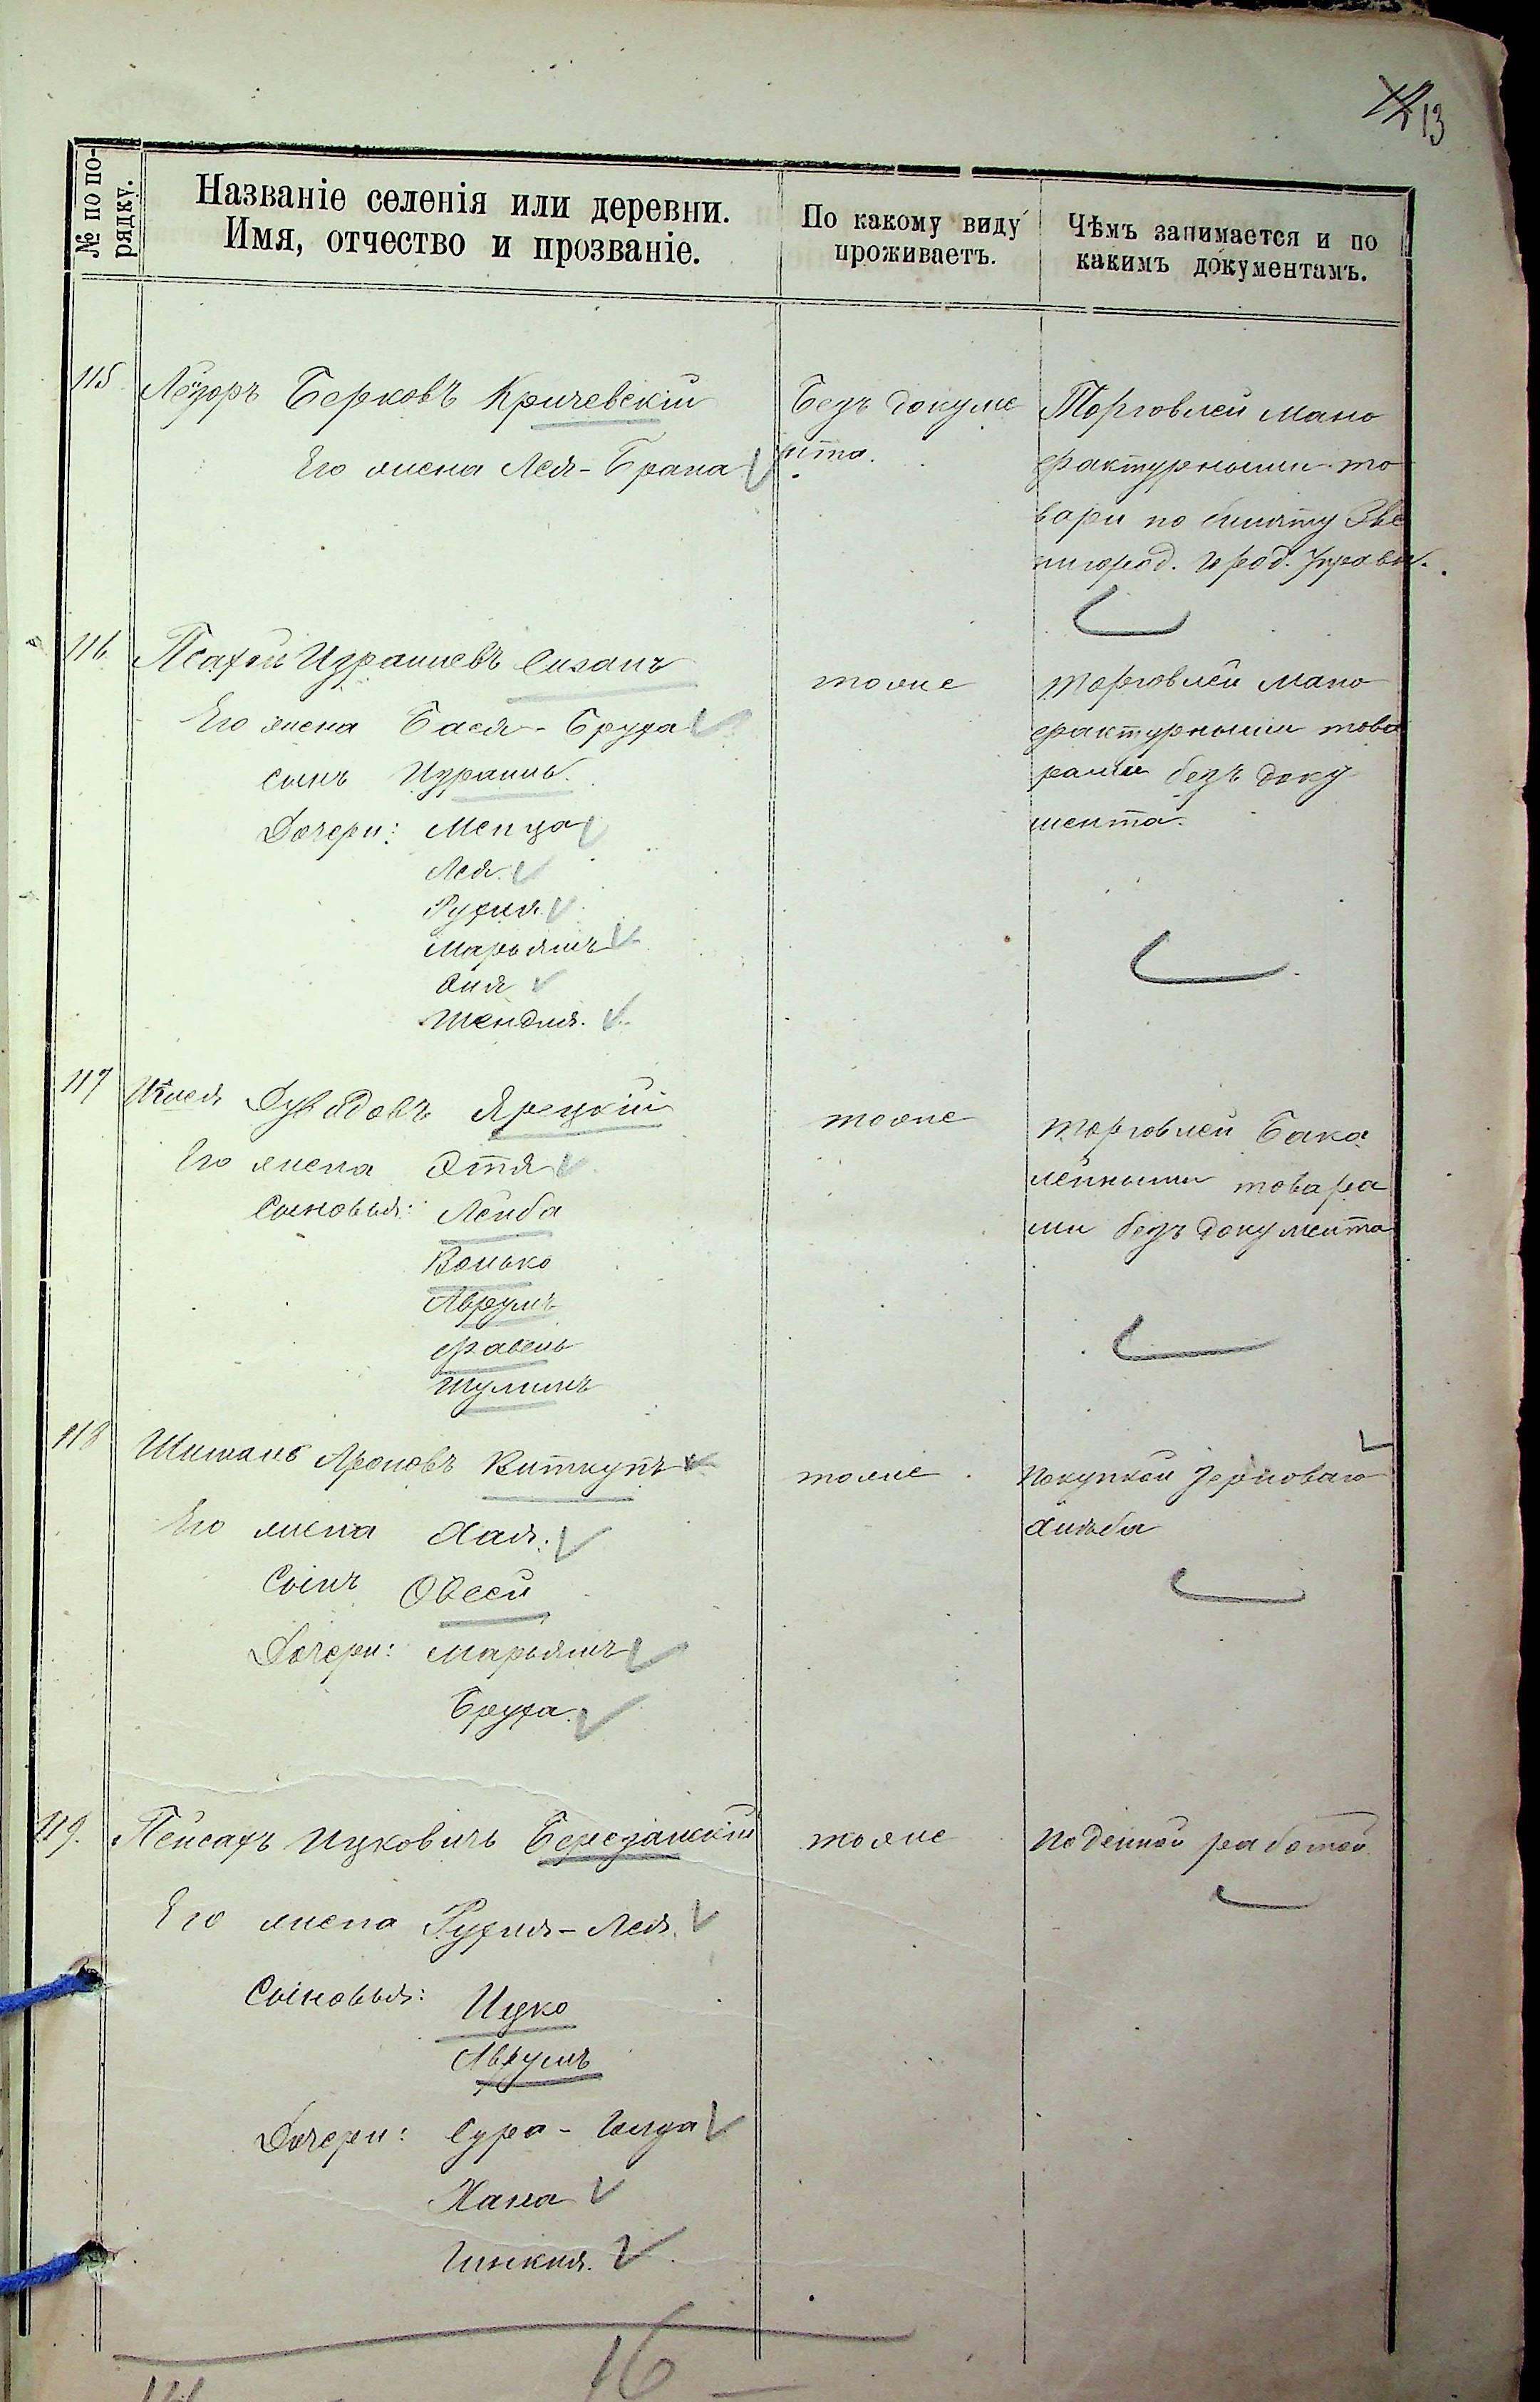 13
№ по по-
рядку.
Названіе селенія или деревни.
Имя, отчество и прозваніе.
По какому виду
проживаетъ.
Чѣмъ занимается и по
какимъ документамъ.
115
Лейзоръ Берковъ Кричевскій
Его жена Лея-Брана
Безъ докуме
нта.
Торговлей мано
фактурными то
вари по билету Зве
нигород. город. Управы.
116
Израилевъ
Его жена Бася-Бруха
сынъ Израиль.
Дочери: Менца
Лея
Рухля
Марьямъ
Шендля.
тоже
торговлей мано
фактурными това
рами безъ доку
мента.
117
Дувидовъ Ярецкій
Его жена Этя
Сыновья: Лейба
Волько
Аврумъ
Шулимъ
тоже
торговлей бака
лейными товара
ми безъ документа
118
Шиманъ Ароновъ
Его жена Хая.
Сынъ Овсей
Дочери: Марьямъ
Бруха.
тоже
покупкой зерноваго
хлѣба
119.
Пейсахъ Ицковичъ Березанскій
Его жена Рухля-Лея.
Сыновья: Ицко
Аврумъ
Дочери: Сура-Голда
Хана
тоже
поденной работой
16